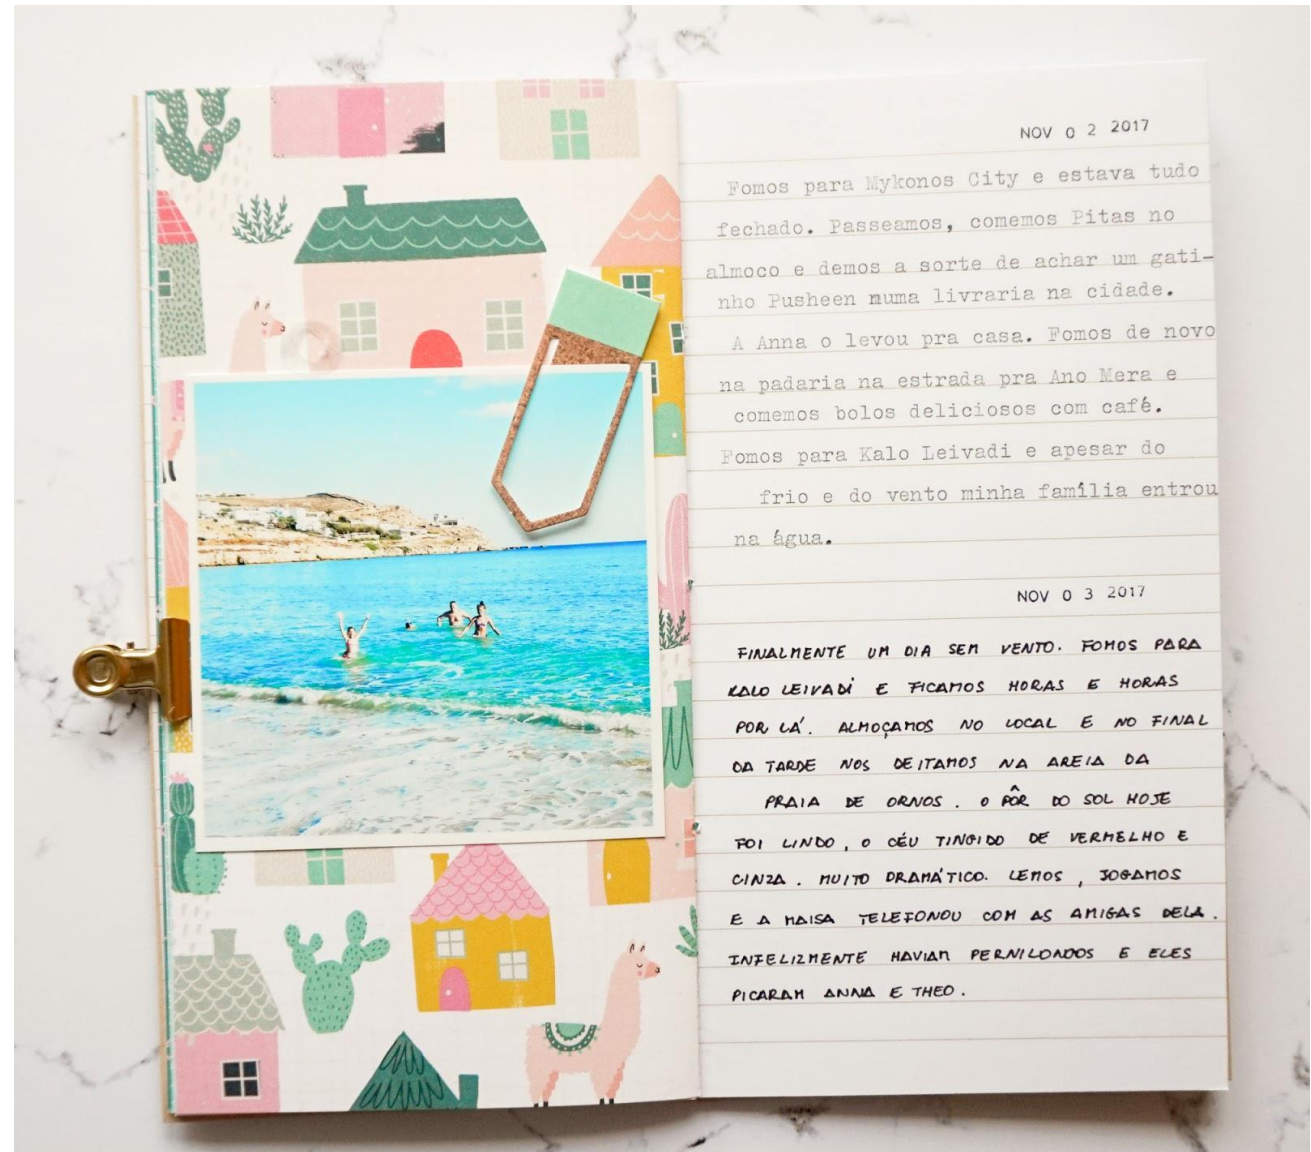 NOV 0 2 2017
Fomos para Mykonos City e estava tudo
fechado. Passeamos, comemos Pitas no
almoco e demos a sorte de achar um gati-
nho Pusheen numa livraria na cidade.
A Anna o levou pra casa. Fomos de novo
na padaria na estrada pra Ano Mera e
comemos bolos deliciosos com café.
Fomos para Kalo Leivadi e apesar do
frio e do vento minha família entrou
na água.
NOV 0 3 2017
FINALMENTE UM DIA SEM VENTO. FOMOS PARA
KALO LEIVADI E FICAMOS HORAS E HORAS
POR LÁ. ALMOÇAMOS NO LOCAL E NO FINAL
DA TARDE NOS DEITAMOS NA AREIA DA
PRAIA DE ORNOS. O PÔR DO SOL HOJE
FOI LINDO, O CÉU TINGIDO DE VERMELHO E
CINZA. MUITO DRAMÁTICO. LEMOS, JOGAMOS
E A MAISA TELEFONOU COM AS AMIGAS DELA.
INFELIZMENTE HAVIAM PERNILONGOS E ELES
PICARAM ANNA E THEO.